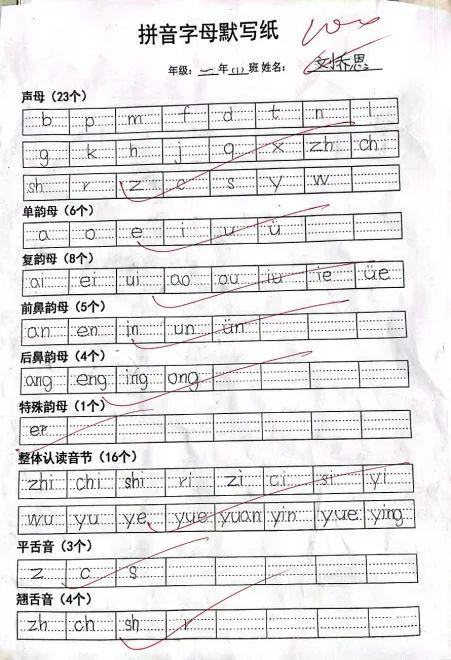 拼音字母默写纸 100
年级：一年（1）班 姓名：刘乔恩
声母（23个）
b p m f d t n l
g k h j q x zh ch
sh r z c s y w
单韵母（6个）
a o e i u ü
复韵母（8个）
ai ei ui ao ou iu ie üe
前鼻韵母（5个）
an en in un ün
后鼻韵母（4个）
ang eng ing ong
特殊韵母（1个）
er
整体认读音节（16个）
zhi chi shi ri zi ci si yi
wu yu ye yue yuan yin yue ying
平舌音（3个）
z c s
翘舌音（4个）
zh ch sh r